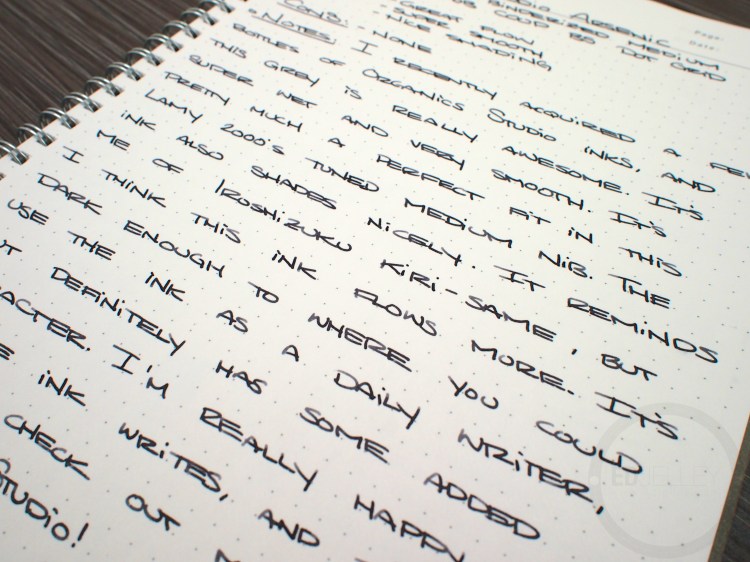 ARSENIC
BINDERIZED MEDIUM
CODE B5 DOT GRID
Page:
Date:
- GREAT FLOW
- SUPER SMOOTH
- NICE SHADING
CONS: - NONE
NOTES: I RECENTLY ACQUIRED A FEW
BOTTLES OF ORGANICS STUDIO INKS, AND
THIS GREY IS REALLY AWESOME. IT'S
SUPER WET AND VERY SMOOTH. IT'S
PRETTY MUCH A PERFECT FIT IN THIS
LAMY 2000'S TUNED MEDIUM NIB. THE
INK ALSO SHADES NICELY. IT REMINDS
ME OF IROSHIZUKU KIRI-SAME, BUT
I THINK THIS INK FLOWS MORE. IT'S
DARK ENOUGH TO WHERE YOU COULD
USE THE INK AS A DAILY WRITER,
UT DEFINITELY HAS SOME ADDED
ACTER. I'M REALLY HAPPY
E INK WRITES, AND
CHECK OUT
STUDIO!